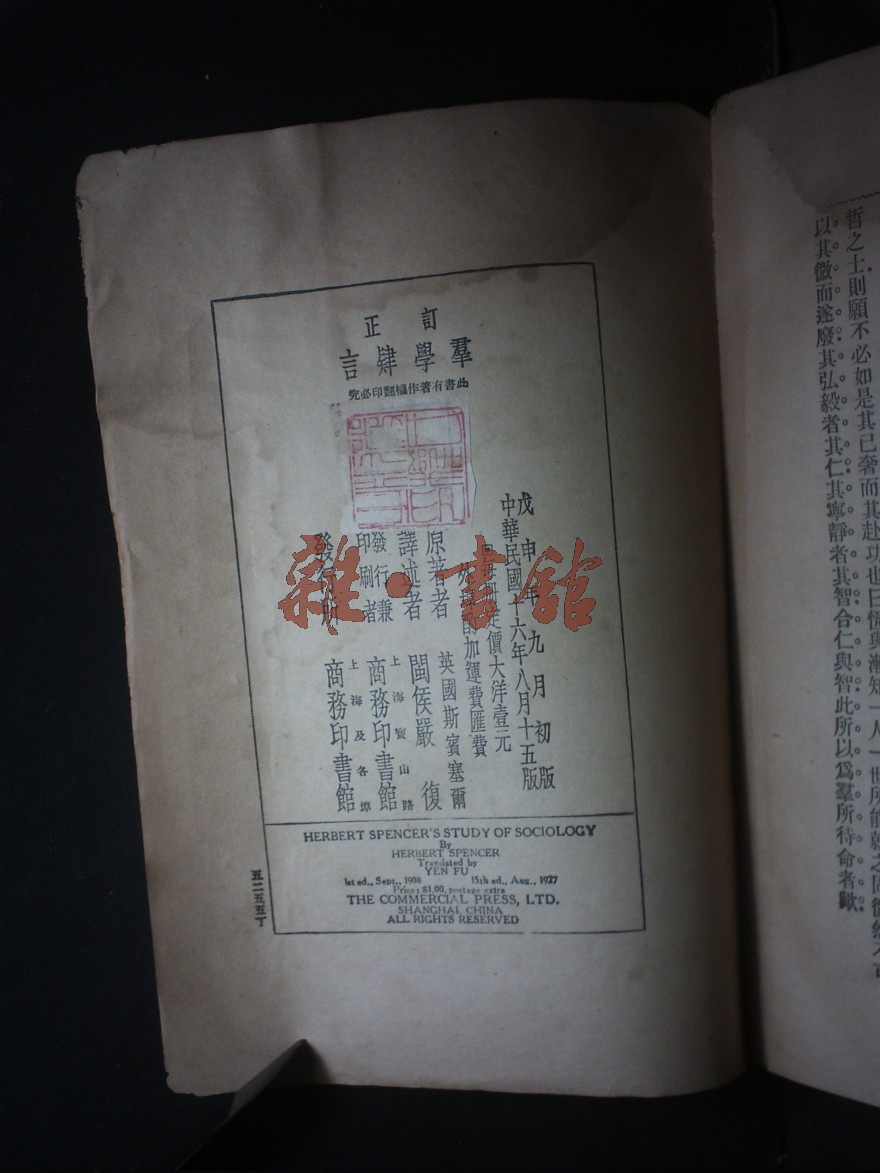 訂正
羣學肄言
此書有著作權翻印必究
戊申年九月初版
中華民國十六年八月十五版
每冊定價大洋壹元
加運費匯費
原著者 英國斯賓塞爾
譯述者 閩侯嚴復
發行兼印刷者 上海寶山路 商務印書館
發行所 上海及各埠 商務印書館
HERBERT SPENCER'S STUDY OF SOCIOLOGY
By
HERBERT SPENCER
Translated by
YEN FU
1st ed., Sept., 1908 15th ed., Aug., 1927
Price: $1.00, postage extra
THE COMMERCIAL PRESS, LTD.
SHANGHAI, CHINA
ALL RIGHTS RESERVED
五二五五丁
雜·書館
哲之士則願不必如是其已奢而其赴功也日恆與漸知一人一世所能就之
以其微而遂廢其弘毅者其仁其寧靜者其智合仁與智此所以爲羣所待命者歟